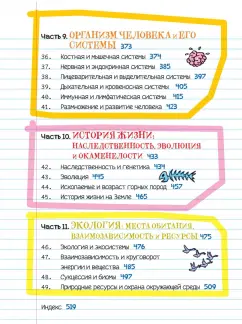 Часть 9. ОРГАНИЗМ ЧЕЛОВЕКА и ЕГО
СИСТЕМЫ 373
36. Костная и мышечная системы 374
37. Нервная и эндокринная системы 385
38. Пищеварительная и выделительная системы 397
39. Дыхательная и кровеносная системы 405
40. Иммунная и лимфатическая системы 415
41. Размножение и развитие человека 423
Часть 10. ИСТОРИЯ ЖИЗНИ:
НАСЛЕДСТВЕННОСТЬ, ЭВОЛЮЦИЯ
И ОКАМЕНЕЛОСТИ 433
42. Наследственность и генетика 434
43. Эволюция 445
44. Ископаемые и возраст горных пород 457
45. История жизни на Земле 465
Часть 11. ЭКОЛОГИЯ: МЕСТА ОБИТАНИЯ,
ВЗАИМОЗАВИСИМОСТЬ и РЕСУРСЫ 475
46. Экология и экосистемы 476
47. Взаимозависимость и круговорот
энергии и вещества 485
48. Сукцессия и биомы 497
49. Природные ресурсы и охрана окружающей среды 509
Индекс 519